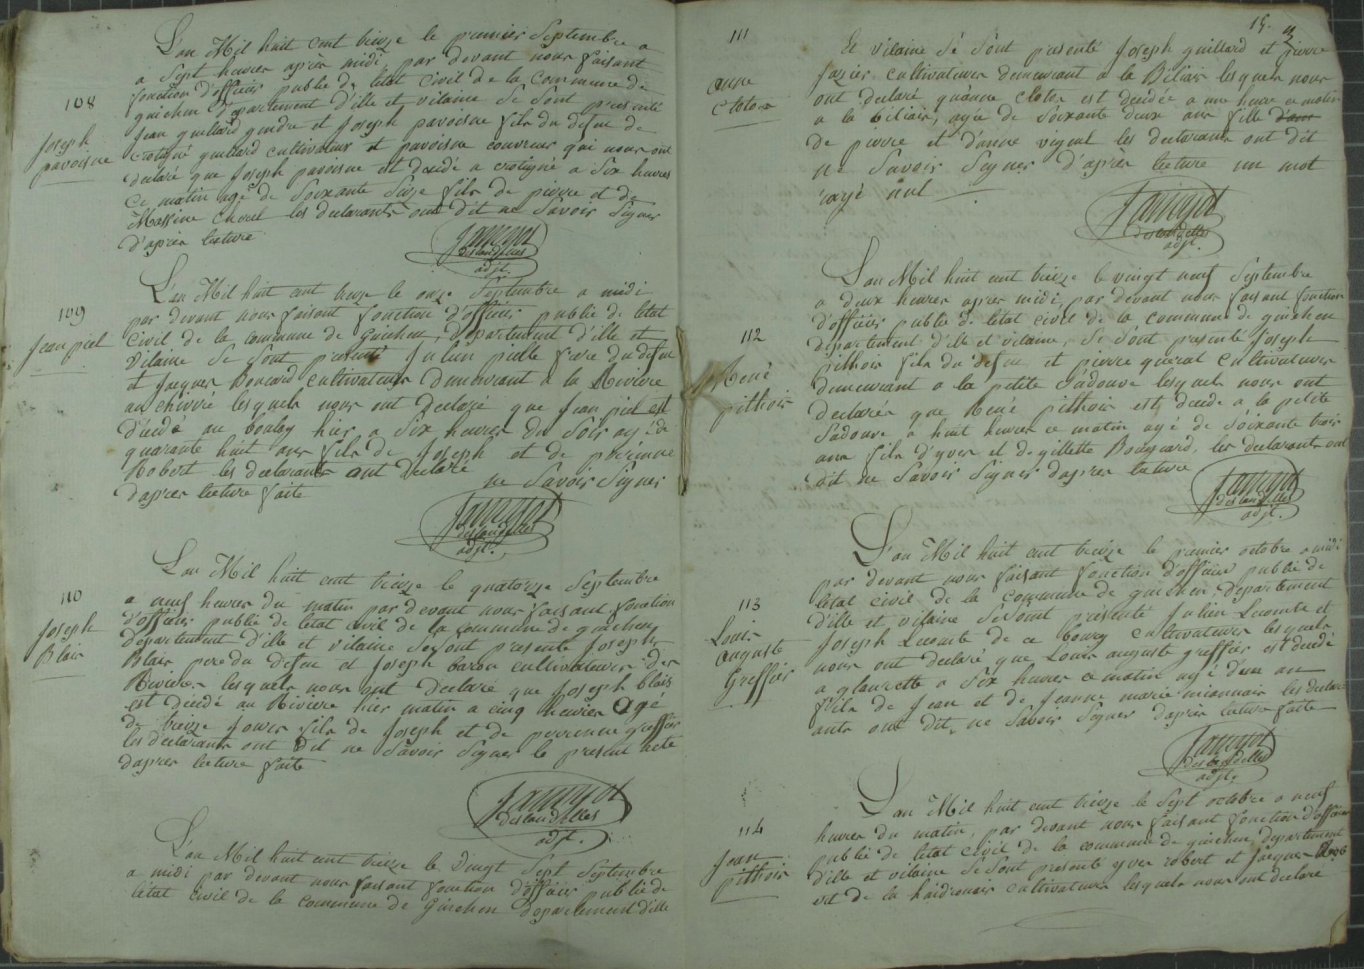 L'an Mil huit cent treize le premier Septembre a
a Sept heures apres midi, par devant nous faisant
fonction d'officier public de letat Civil de la Commune de
guichen departement d'ille et vilaine Se Sont presenté
jean guillard gendre et Joseph pavoisne fils du defun de
crotigné guillard cultivateur et pavoisne couvreur qui nous ont
declaré que Joseph pavoisne est decedé a crotigné a Six heures
Ce matin agé de Soixante Seize fils de pierre et de
les declarants ont dit ne Savoir Signer
d'apres lecture
108
Joseph
pavoisne
Jamyot
deslandelles
adjt.
L'an Mil huit cent treize le onze Septembre a midi
par devant nous faisant fonction d'officier public de letat
Civil de la commune de Guichen, departement d'ille et
Vilaine Se Sont presenté Julien pielle frere du defun
et Jacques Boucard cultivateurs demeurant a la Riviere
au lesquels nous ont declaré que Jean piel est
decedé au boulay hier a Six heures du Soir agé de
quarante huit ans fils de Joseph et de perinne
Robert les declarants ont declaré ne Savoir Signer
dapres lecture faite
109
Jean piel
Jamyot
deslandelles
adjt.
L'an Mil huit cent treize le quatorze Septembre
a neuf heures du matin par devant nous faisant fonction
d'officier public de letat civil de la commune de guichen
departement d'ille et vilaine Se Sont presenté Joseph
Blais pere du defun et Joseph baron cultivateurs des
Rivieres lesquels nous ont declaré que Joseph blais
est decedé au Riviere hier matin a cinq heures agé
de treize jours fils de Joseph et de perrinne greffier
les declarants ont dit ne Savoir Signer le present acte
dapres lecture faite
110
Joseph
Blais
Jamyot
deslandelles
adjt.
L'an Mil huit cent treize le vingt Sept Septembre
a midi par devant nous faisant fonction d'officier public de
létat civil de la commune de Guichen departement d'ille
15.
111
anne
cloton
Et vilaine Se Sont presenté Joseph guillard et pierre
cultivateurs demeurant a la Bitiais lesquels nous
ont declaré qu'anne cloton est decedée a une heure ce matin
a la bitiais, agée de Soixante deux ans fille
de pierre et d'anne les declarants ont dit
ne Savoir Signer d'après lecture un mot
rayé nul
Jamyot
deslandelles
adjt.
L'an Mil huit cent treize le vingt neuf Septembre
a deux heures apres midi, par devant nous faisant fonction
d'officier public de letat civil de la commune de guichen
departement d'ille et vilaine, Se Sont presenté Joseph
pithois fils du defun et pierre cultivateurs
demeurant a la petite Sadouve lesquels nous ont
declarés que René pithois est decedé a la petite
Sadouve a huit heures ce matin agé de Soixante trois
ans fils d'yves et de gillette les declarants ont
dit ne Savoir Signer dapres lecture
112
René
pithois
Jamyot
deslandelles
adjt.
L'an Mil huit cent treize le premier octobre a midi
par devant nous faisant fonction d'officier public de
letat civil de la commune de guichen, departement
d'ille et vilaine Se Sont presenté Julien Lecomte et
Joseph Lecomte de ce bourg cultivateurs lesquels
nous ont declaré que Louis auguste greffier est decedé
a glanrette a Six heures ce matin agé d'un an
fils de Jean et de Jeanne marie les declar
ants ont dit, ne Savoir Signer dapres lecture faite
113
Louis
auguste
Greffier
Jamyot
deslandelles
adjt.
L'an Mil huit cent treize le Sept octobre a neuf
heures du matin, par devant nous faisant fonction d'officier
public de letat civil de la commune de guichen departement
d'ille et vilaine Se Sont presenté yves robert et jacques
de la cultivateurs lesquels nous ont declaré
114
Jean
pithois